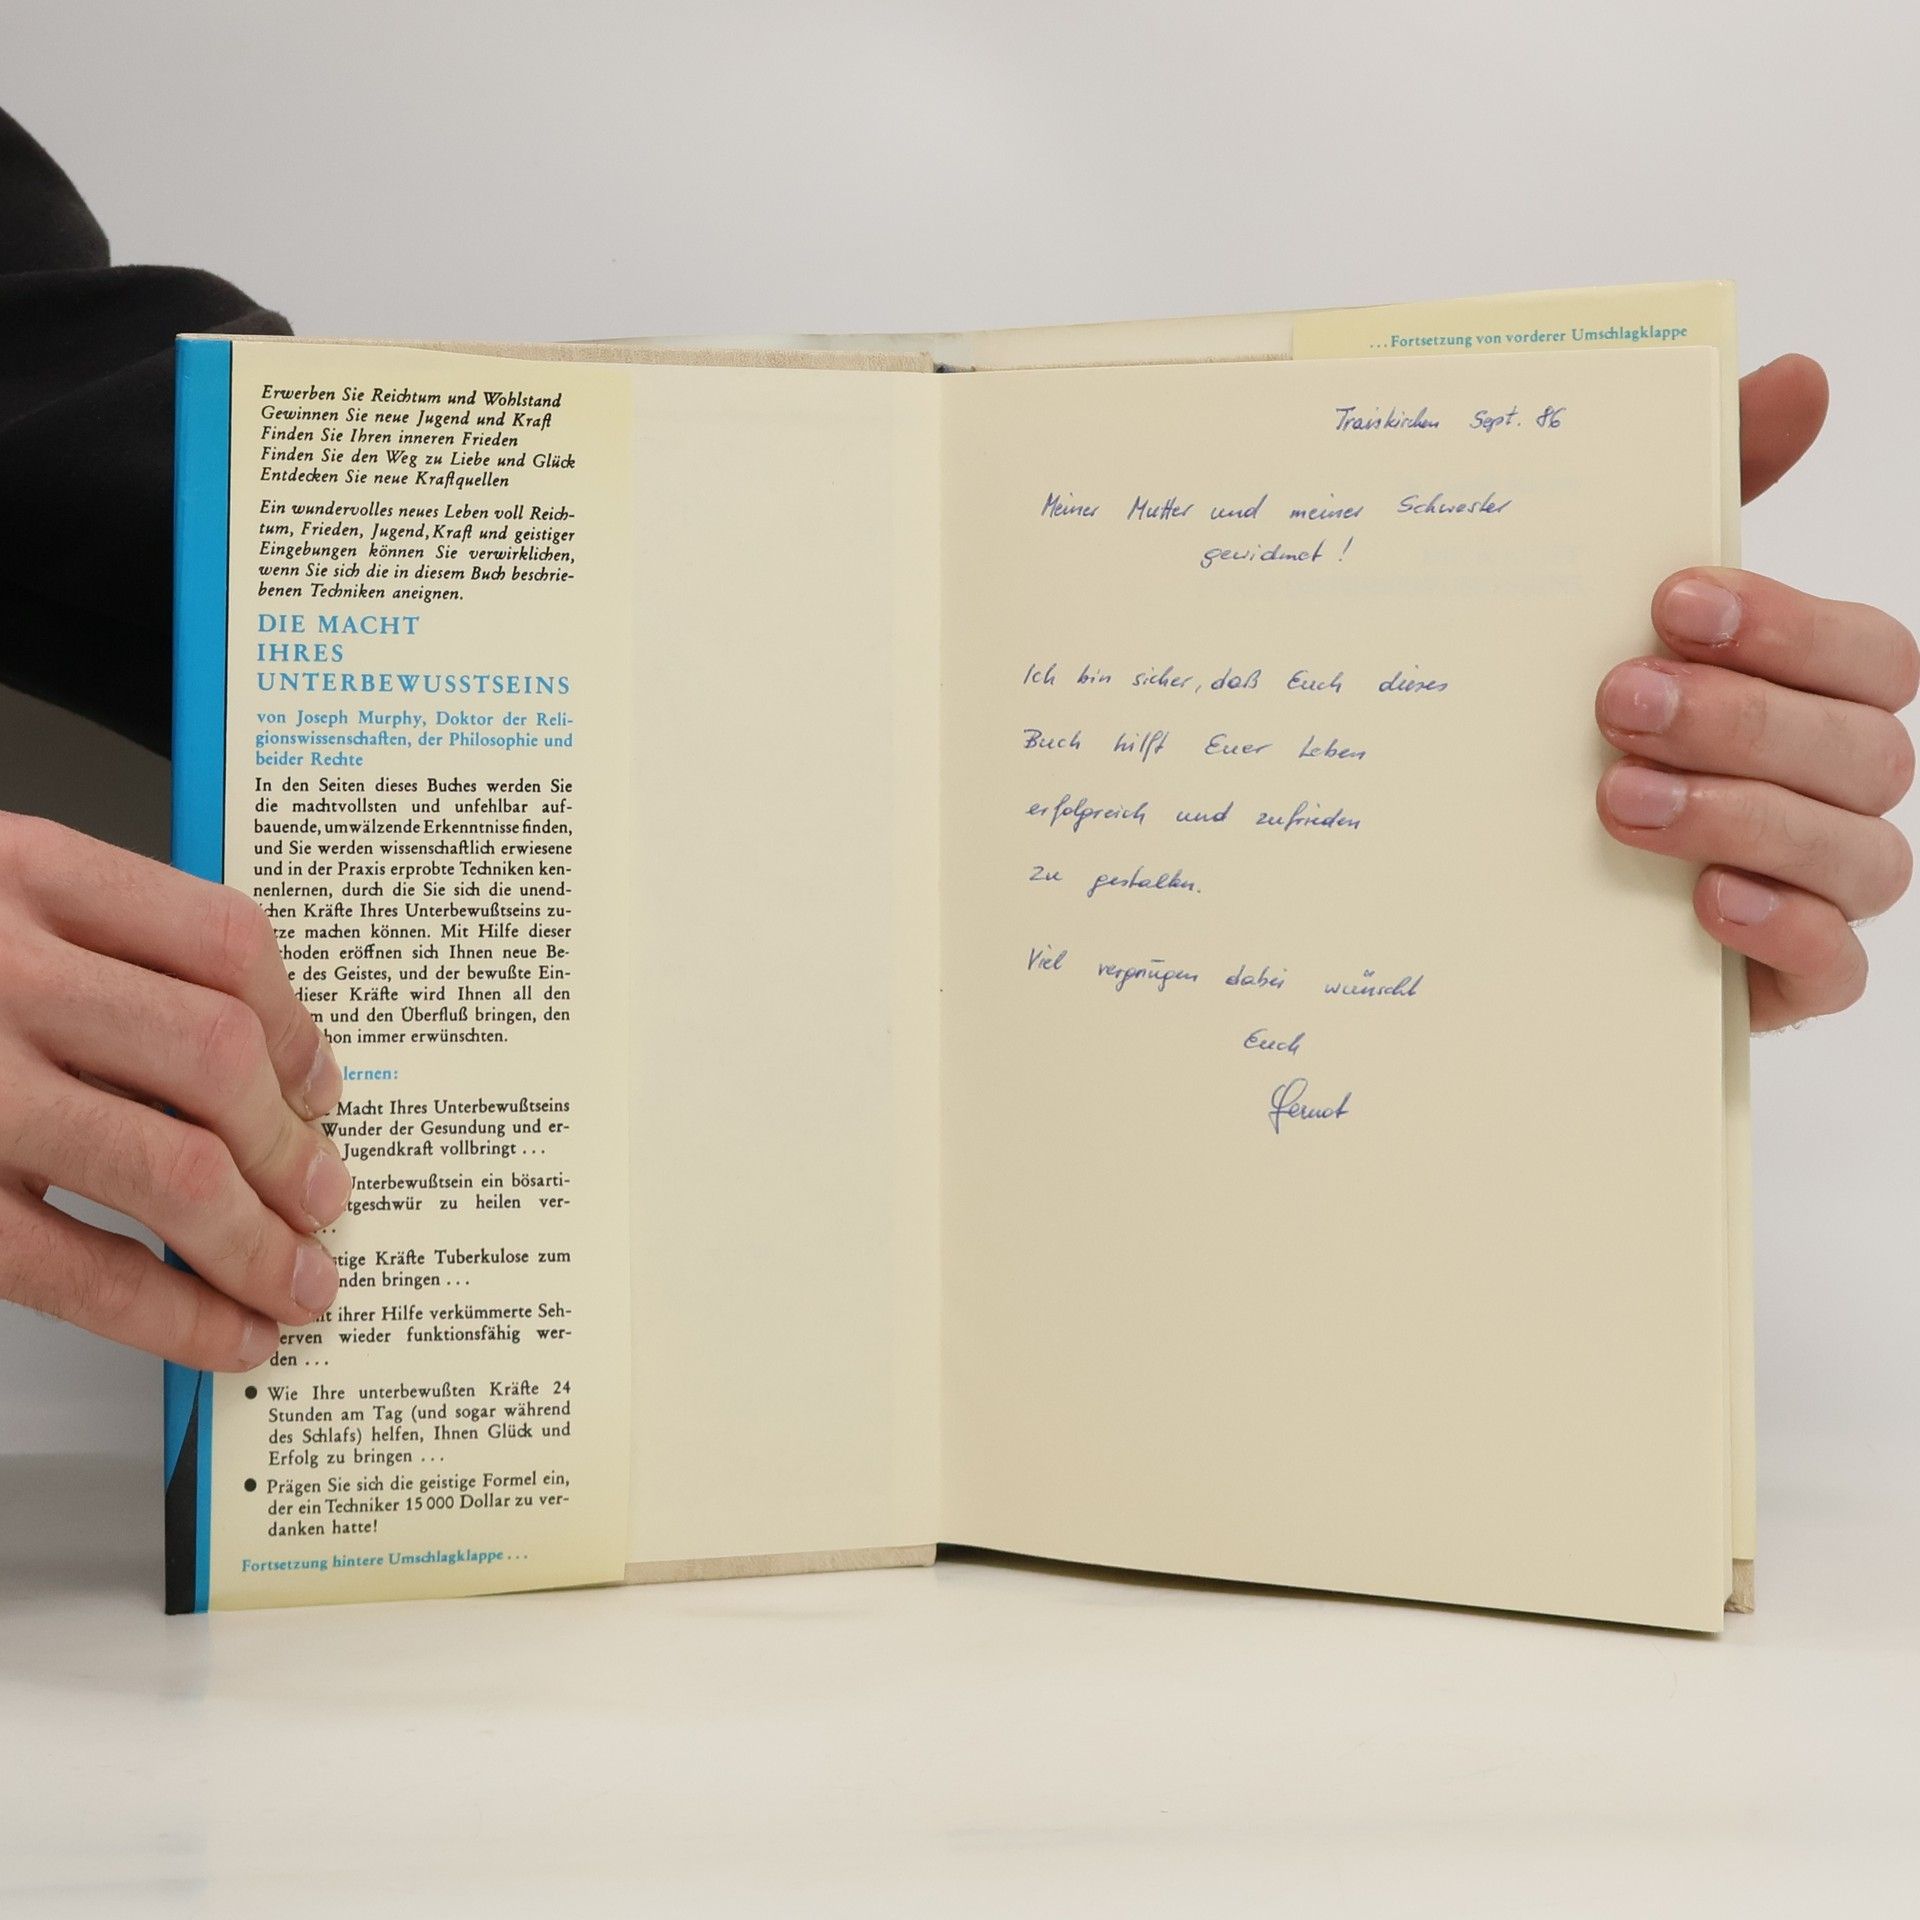 Erwerben Sie Reichtum und Wohlstand
Gewinnen Sie neue Jugend und Kraft
Finden Sie Ihren inneren Frieden
Finden Sie den Weg zu Liebe und Glück
Entdecken Sie neue Kraftquellen
Ein wundervolles neues Leben voll Reich-
tum, Frieden, Jugend, Kraft und geistiger
Eingebungen können Sie verwirklichen,
wenn Sie sich die in diesem Buch beschrie-
benen Techniken aneignen.
DIE MACHT
IHRES
UNTERBEWUSSTSEINS
von Joseph Murphy, Doktor der Reli-
gionswissenschaften, der Philosophie und
beider Rechte
In den Seiten dieses Buches werden Sie
die machtvollsten und unfehlbar auf-
bauende, umwälzende Erkenntnisse finden,
und Sie werden wissenschaftlich erwiesene
und in der Praxis erprobte Techniken ken-
nenlernen, durch die Sie sich die unend-
chen Kräfte Ihres Unterbewußtseins zu-
tze machen können. Mit Hilfe dieser
hoden eröffnen sich Ihnen neue Be-
e des Geistes, und der bewußte Ein-
dieser Kräfte wird Ihnen all den
m und den Überfluß bringen, den
hon immer erwünschten.
lernen:
Macht Ihres Unterbewußtseins
Wunder der Gesundung und er-
Jugendkraft vollbringt ...
Unterbewußtsein ein bösarti-
tgeschwür zu heilen ver-
...
stige Kräfte Tuberkulose zum
nden bringen ...
it ihrer Hilfe verkümmerte Seh-
erven wieder funktionsfähig wer-
den ...
● Wie Ihre unterbewußten Kräfte 24
Stunden am Tag (und sogar während
des Schlafs) helfen, Ihnen Glück und
Erfolg zu bringen ...
● Prägen Sie sich die geistige Formel ein,
der ein Techniker 15 000 Dollar zu ver-
danken hatte!
Fortsetzung hintere Umschlagklappe ...
... Fortsetzung von vorderer Umschlagklappe
Traiskirchen Sept. 86
Meiner Mutter und meiner Schwester
gewidmet !
Ich bin sicher, daß Euch dieses
Buch hilft Euer Leben
erfolgreich und zufrieden
zu gestalten.
Viel vergnügen dabei wünscht
Euch
Gernot